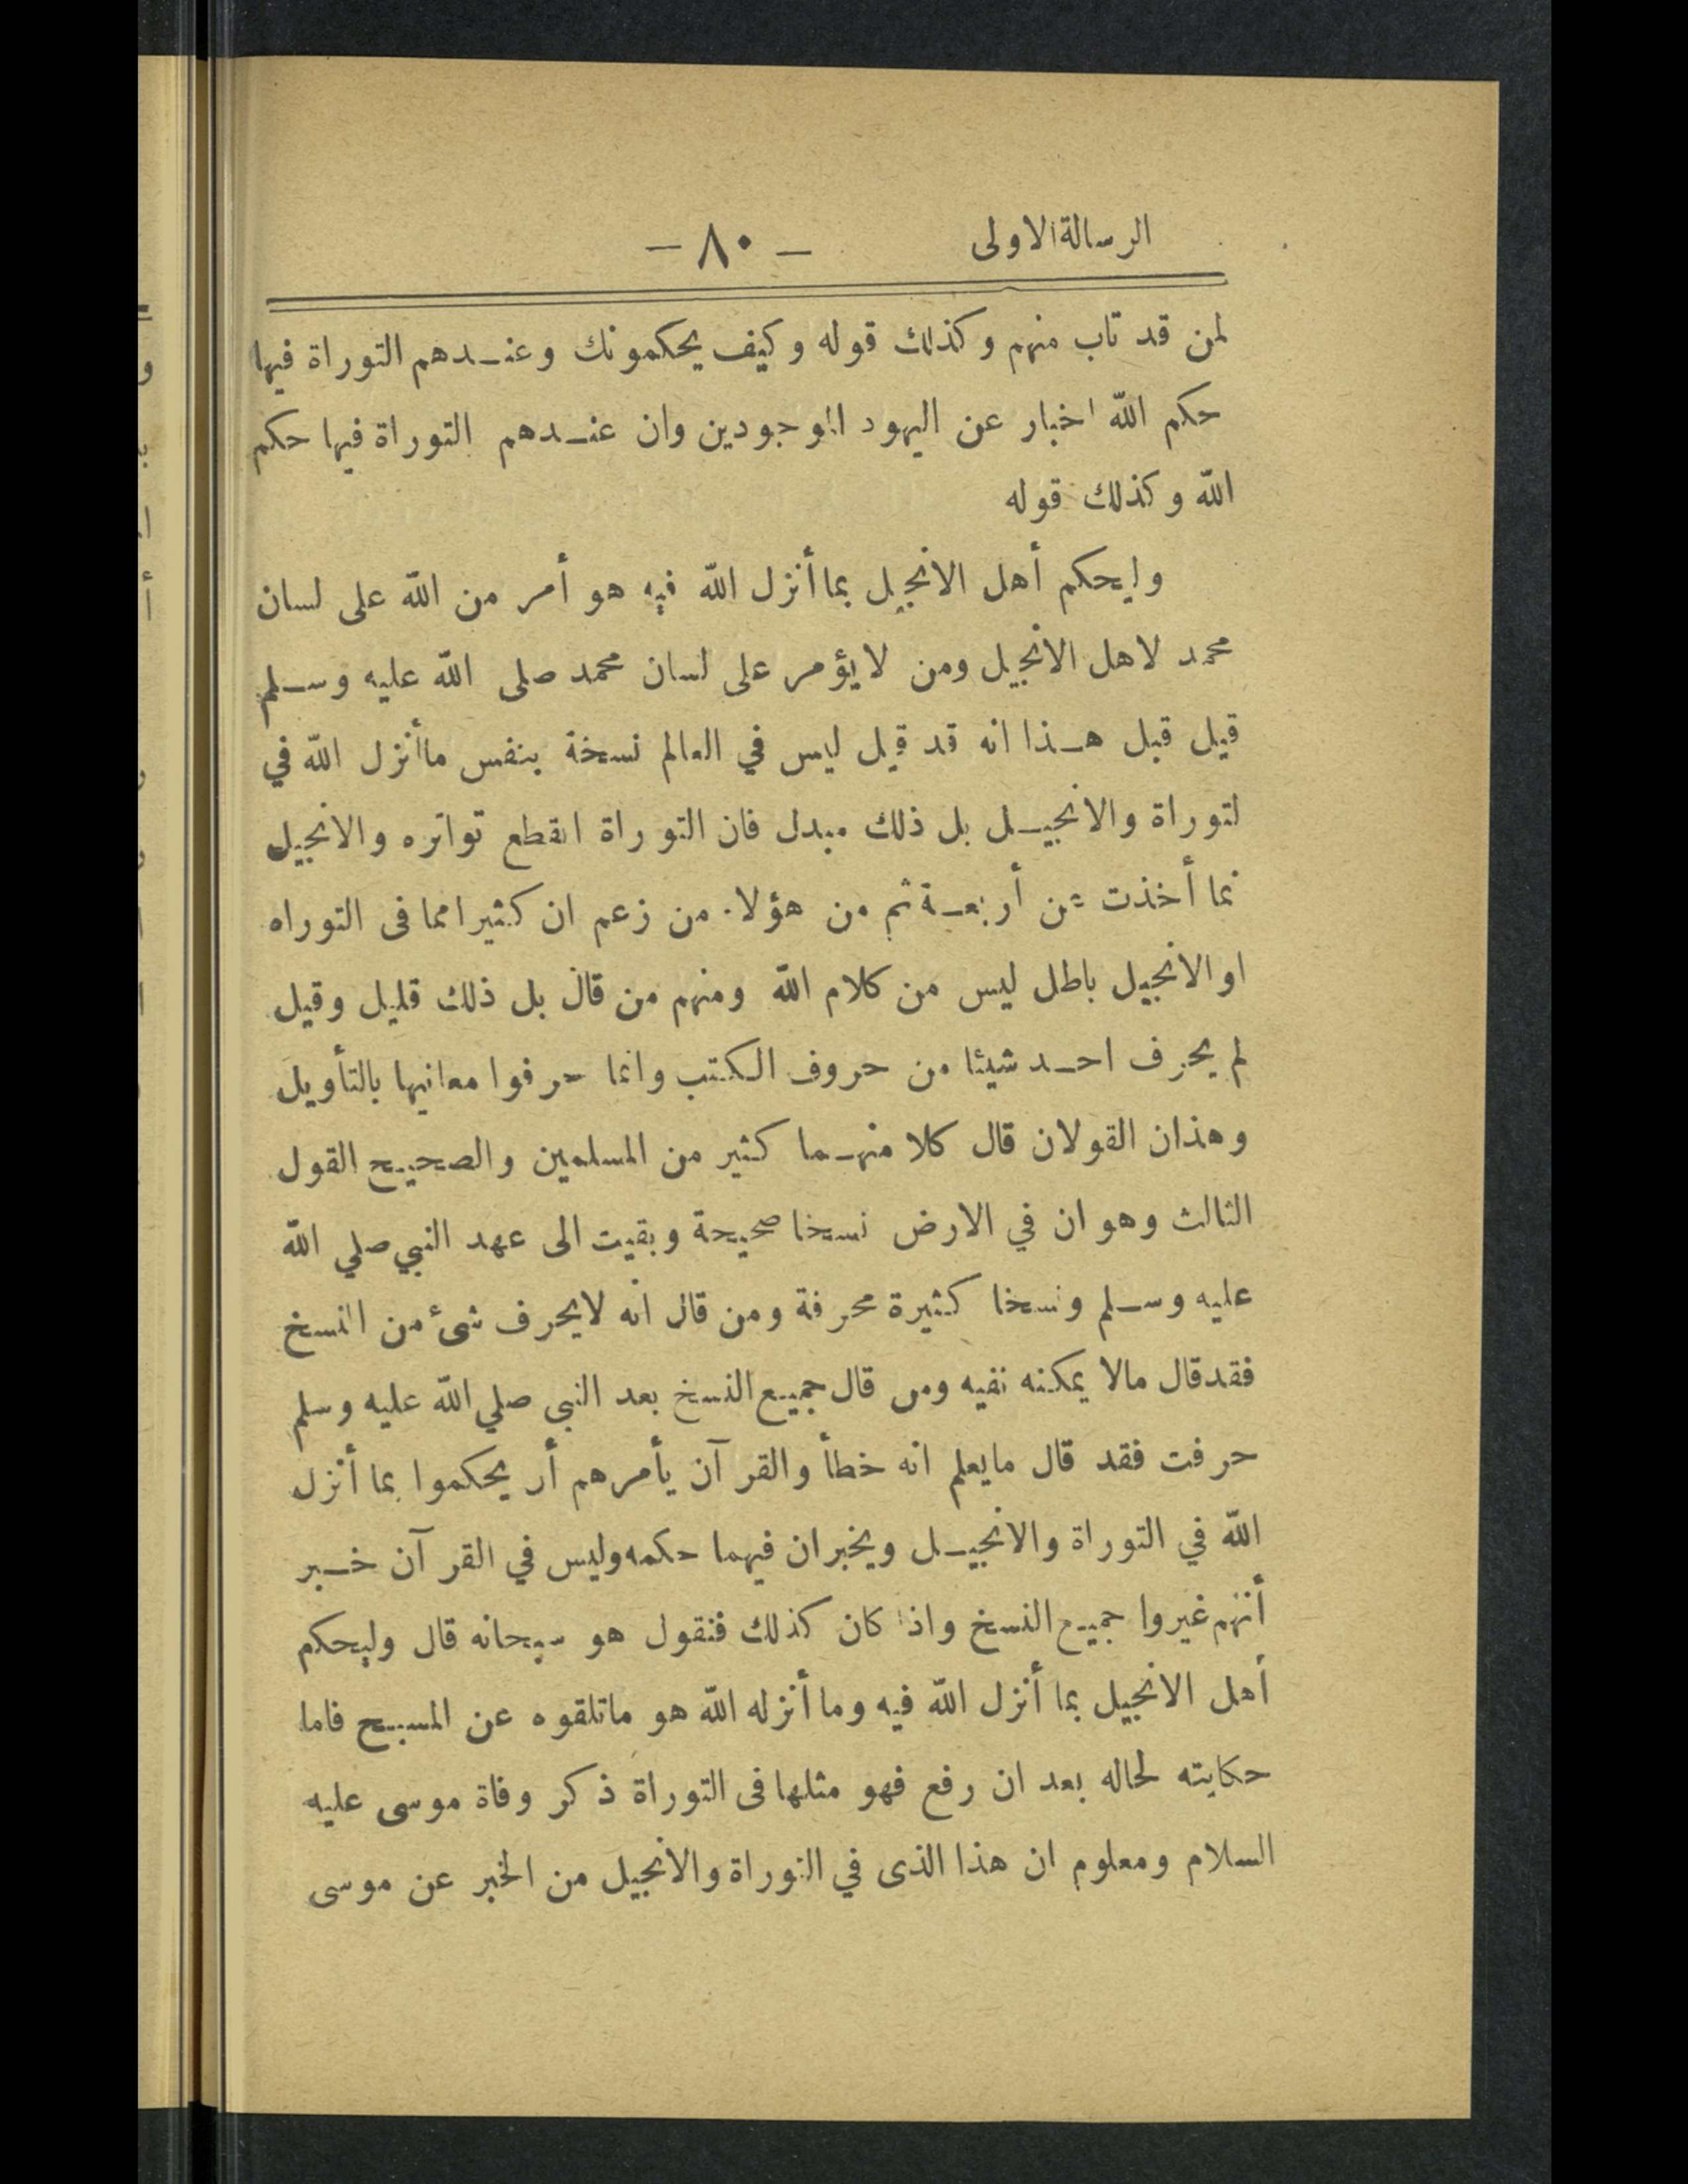 الرسالة الاولى — ٨٠ —
لمن قد تاب منهم وكذلك قوله وكيف يحكمونك وعندهم التوراة فيها
حكم الله اخبار عن اليهود الموجودين وان عندهم التوراة فيها حكم
الله وكذلك قوله
وليحكم أهل الانجيل بما أنزل الله فيه هو أمر من الله على لسان
محمد لاهل الانجيل ومن لا يؤمر على لسان محمد صلى الله عليه وسلم
قيل قبل هذا انه قد قيل ليس في العالم نسخة بنفس ما أنزل الله في
لتوراة والانجيل بل ذلك مبدل فان التوراة انقطع تواتره والانجيل
نما أخذت عن أربعة ثم من هؤلاء من زعم ان كثيرا مما فى التوراه
او الانجيل باطل ليس من كلام الله ومنهم من قال بل ذلك قليل وقيل
لم يحرف احد شيئا من حروف الكتب وانما حرفوا معانيها بالتأويل
وهذان القولان قال كلا منهما كثير من المسلمين والصحيح القول
الثالث وهو ان في الارض نسخا صحيحة وبقيت الى عهد النبي صلي الله
عليه وسلم ونسخا كثيرة محرفة ومن قال انه لا يحرف شئ من النسخ
فقد قال مالا يمكنه نفيه ومن قال جميع النسخ بعد النبى صلي الله عليه وسلم
حرفت فقد قال ما يعلم انه خطأ والقرآن يأمرهم أن يحكموا بما أنزل
الله في التوراة والانجيل ويخبر ان فيهما حكمه وليس في القرآن خبر
أنهم غيروا جميع النسخ واذا كان كذلك فنقول هو سبحانه قال وليحكم
أهل الانجيل بما أنزل الله فيه وما أنزله الله هو ما تلقوه عن المسيح فاما
حكايته لحاله بعد ان رفع فهو مثلها فى التوراة ذكر وفاة موسى عليه
السلام ومعلوم ان هذا الذى في التوراة والانجيل من الخبر عن موسى